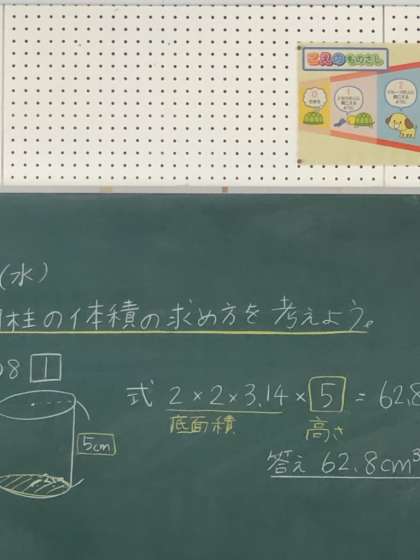 こえのものさし
0
1
2
(水)
柱の体積の求め方を考えよう。
8 1
式 2×2×3.14×5=62.8
底面積
高さ
5cm
答え 62.8cm³